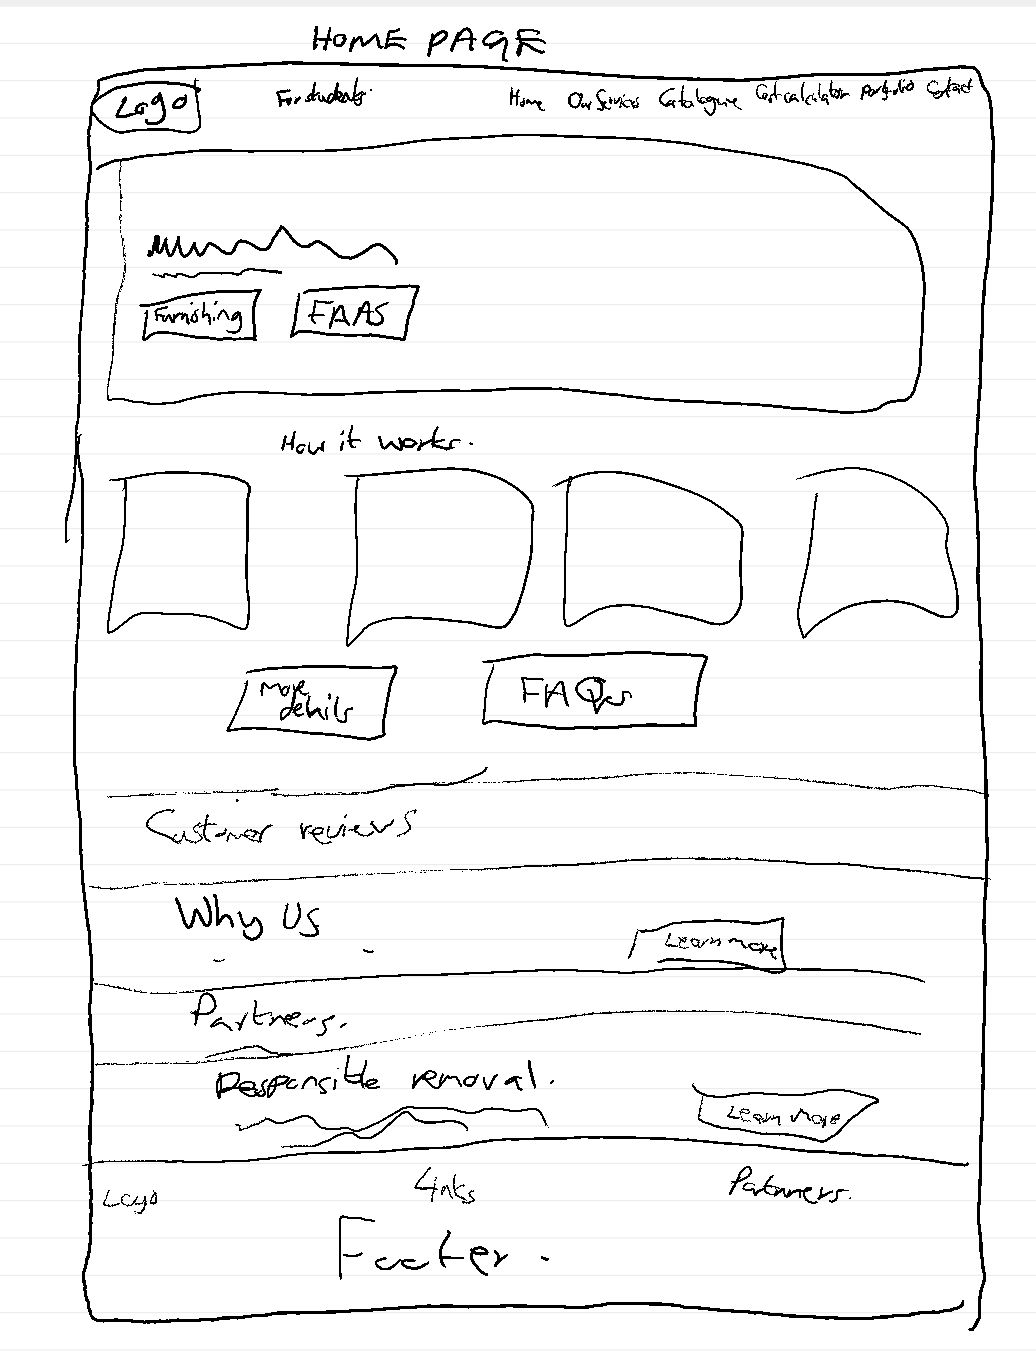 HOME PAGE
Logo For students. Home Our Services Catalogue Cost calculator Portfolio Contact
Furnishing FAAS
How it works.
More details FAQs
Customer reviews
Why US
Learn more
Partners.
Responsible removal.
Learn more
Logo Links Partners.
Footer.